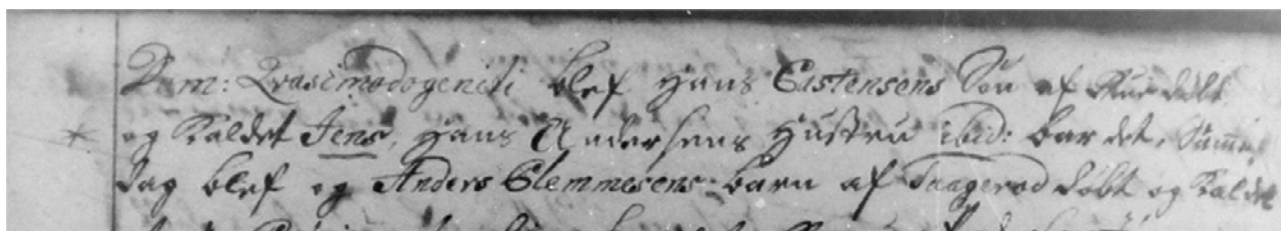 Dom: Qvasimodogeniti blef Hans Carstensens Søn af døbt
og Kaldet Jens, Hans Andersens Hustru ibid: bar det, Samme
dag blef og Anders Clemmesens barn af Taagerød døbt og Kaldet